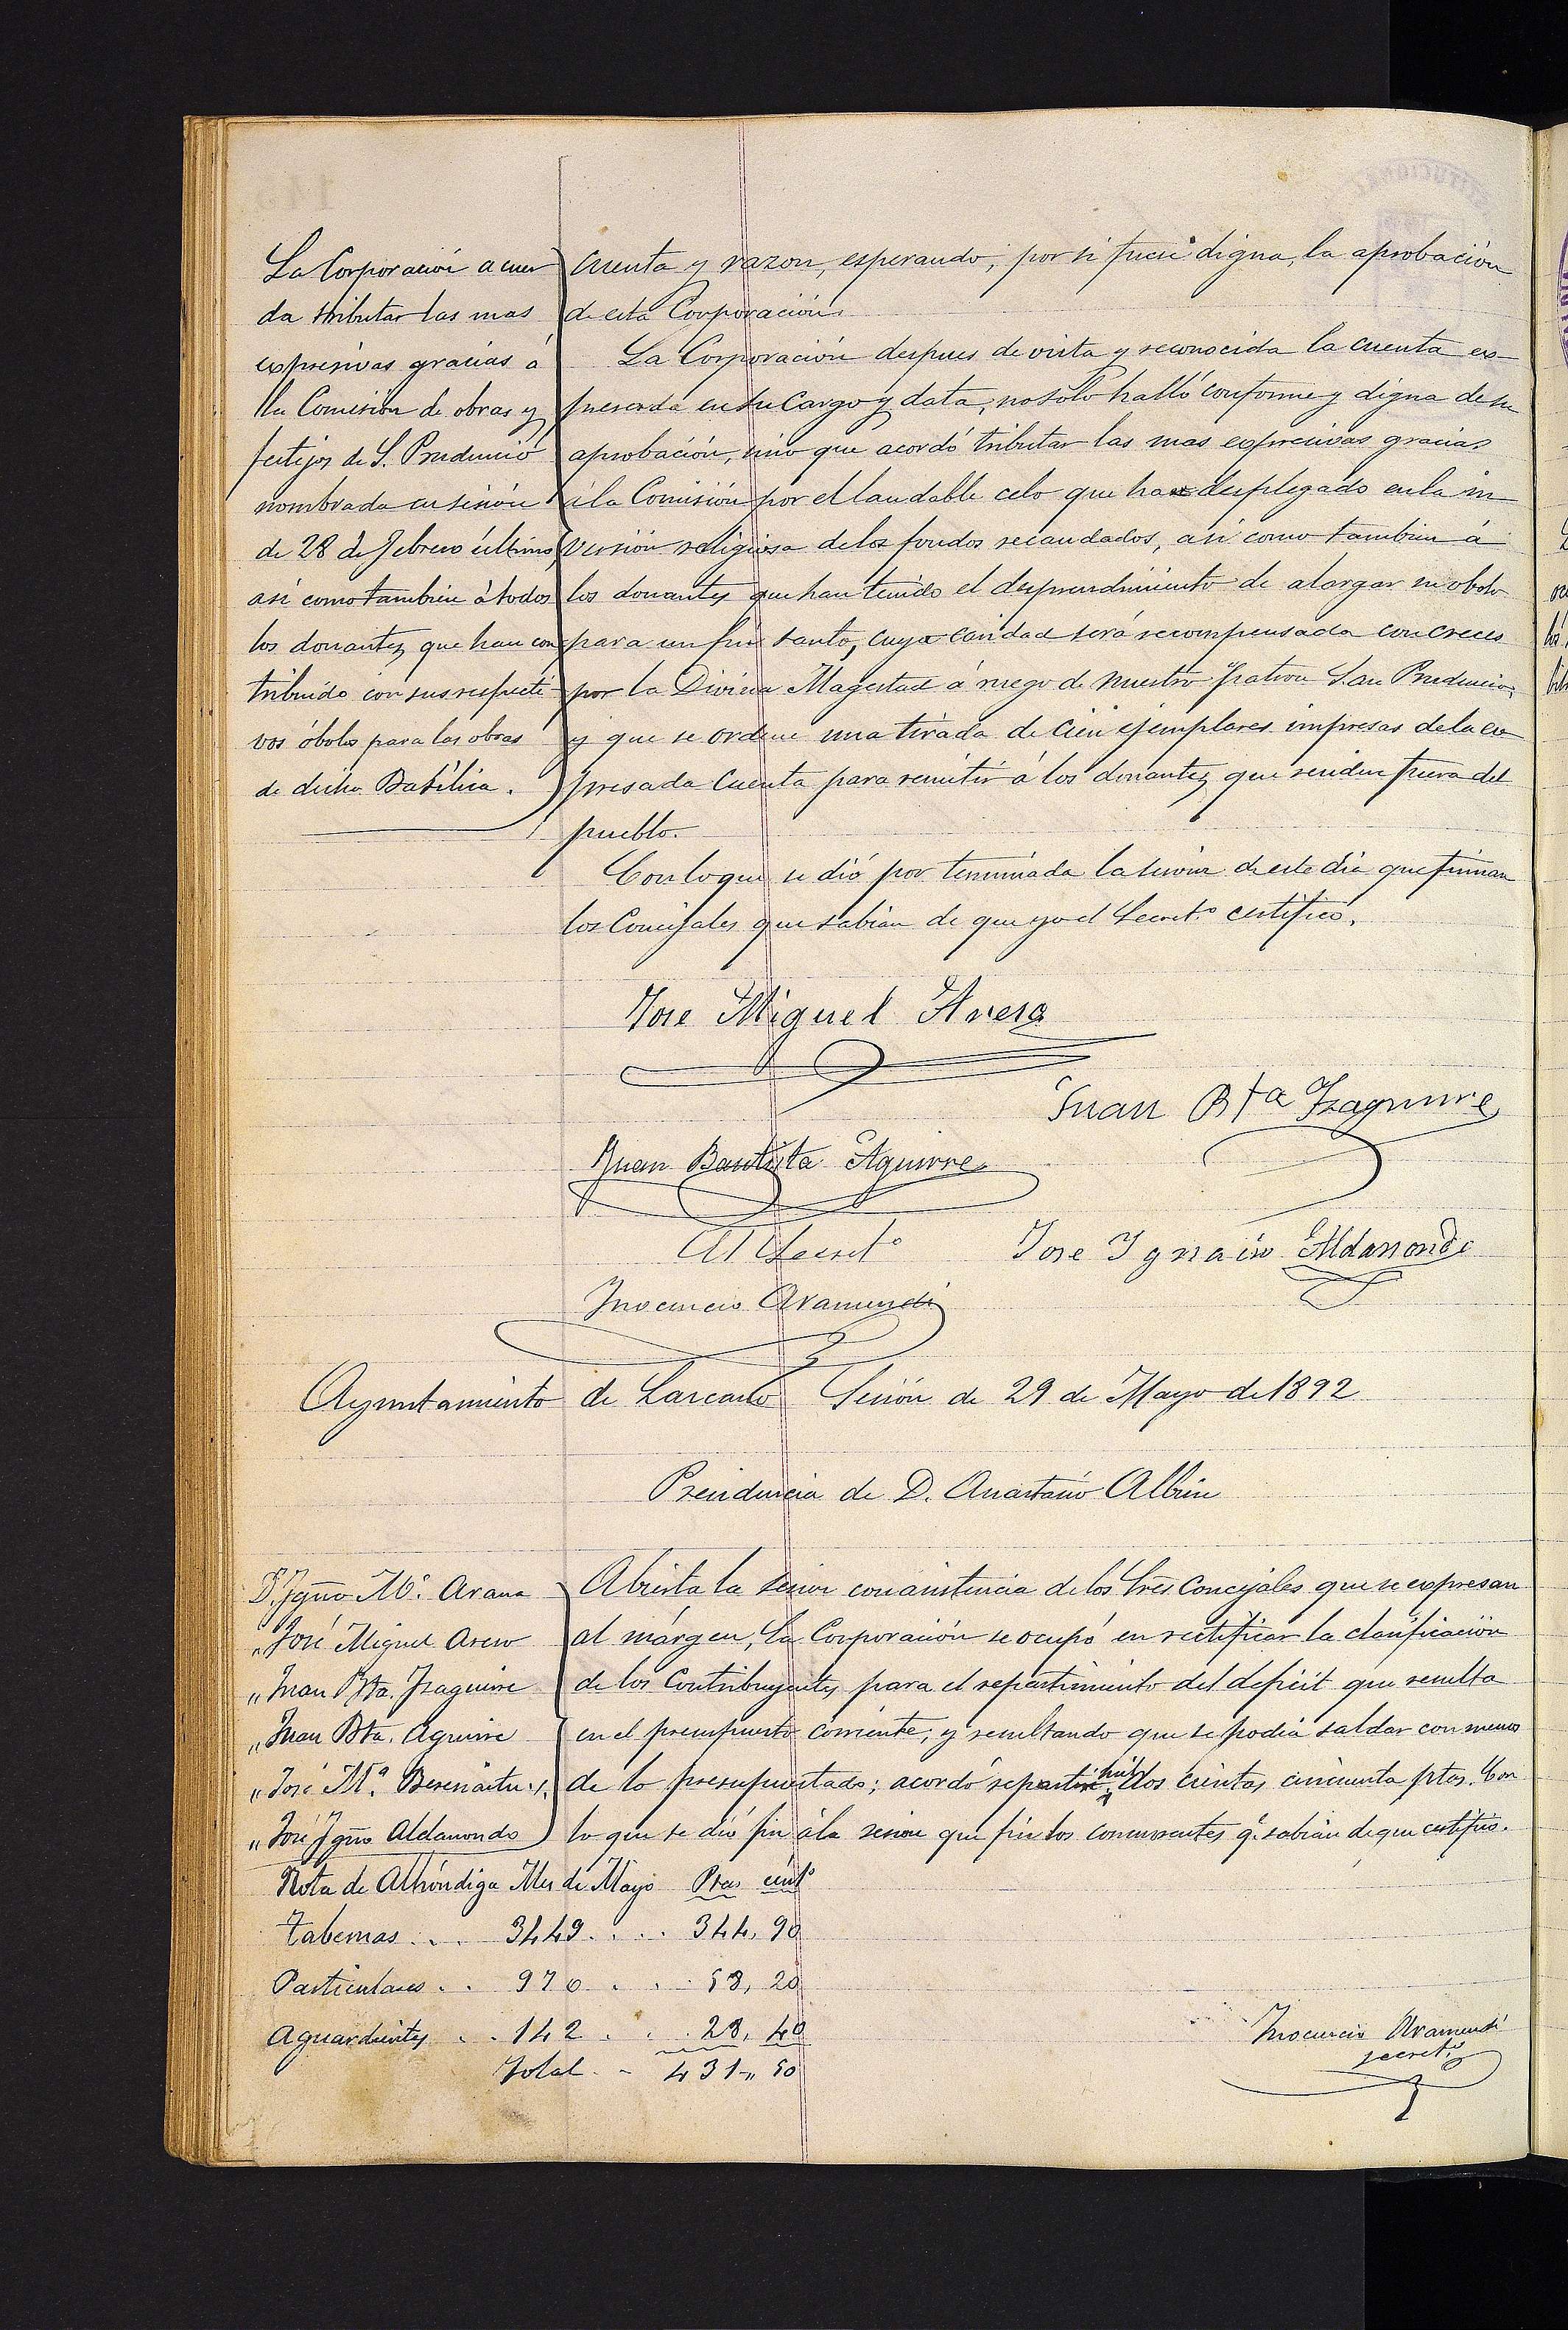 La Corporación acuer
da tributar las mas
expresivas gracias á
la Comisión de obras y
festejos de S. Prudencio
nombrada en sesión
de 28 de Febrero último,
asi como tambien á todos
los donantes que han con
tribuido con sus respecti
vos óbolos para las obras
de dicha Basílica.
cuenta y razon, esperando, por si fuese digna, la aprobación
de esta Corporación.
La Corporación despues de vista y reconocida la cuenta ex-
presada en su Cargo y data, no solo halló conforme y digna de su
aprobación, sino que acordó tributar las mas expresivas gracias
á la Comisión por el laudable celo que ha desplegado en la in
versión religiosa de los fondos recaudados, asi como tambien á
los donantes que han tenido el desprendimiento de alargar su obolo
para un fin santo, cuya caridad será recompensada con creces
por la Divina Magestad á ruego de nuestro Patron San Prudencio;
y que se ordene una tirada de cien ejemplares impresas de la ex-
presada cuenta para remitir á los donantes que residen fuera del
pueblo.
Con lo que se dió por terminada la sesion de este dia que firman
los Concejales que sabian de que yo el Secret.º certifico.
Jose Miguel Areso
Juan Bta Yzaguirre
Juan Bautista Aguirre
El Secret.º
Jose Ygnacio Aldanondo
Inocencio Aramendi
Ayuntamiento de Lazcano Sesión de 29 de Mayo de 1892
Presidencia de D. Anastasio Albisu
D. Ygno. M.ª Arana
" José Miguel Areso
" Juan Bta. Yzaguirre
" Juan Bta. Aguirre
" José M.ª Berenarte
" José Ygno. Aldanondo
Abierta la sesion con asistencia de los Sres Concejales que se expresan
al márgen, la Corporación se ocupó en rectificar la clasificación
de los Contribuyentes para el repartimiento del deficit que resulta
en el presupuesto corriente; y resultando que se podia saldar con menos
de lo presupuestado; acordó repartir dos cientas cincuenta ptas. Con
lo que se dió fin á la sesion que fin los concurrentes q.e sabian de que certifico.
Nota de Alhóndiga Mes de Mayo Ptas cént.s
Tabernas . . . 3449 . . . . 344, 90
Particulares . . 970 . . . 58, 20
Aguardientes . . 142 . . . 28, 40
Total . - 431 ,, 50
Inocencio Aramendi
secret.º